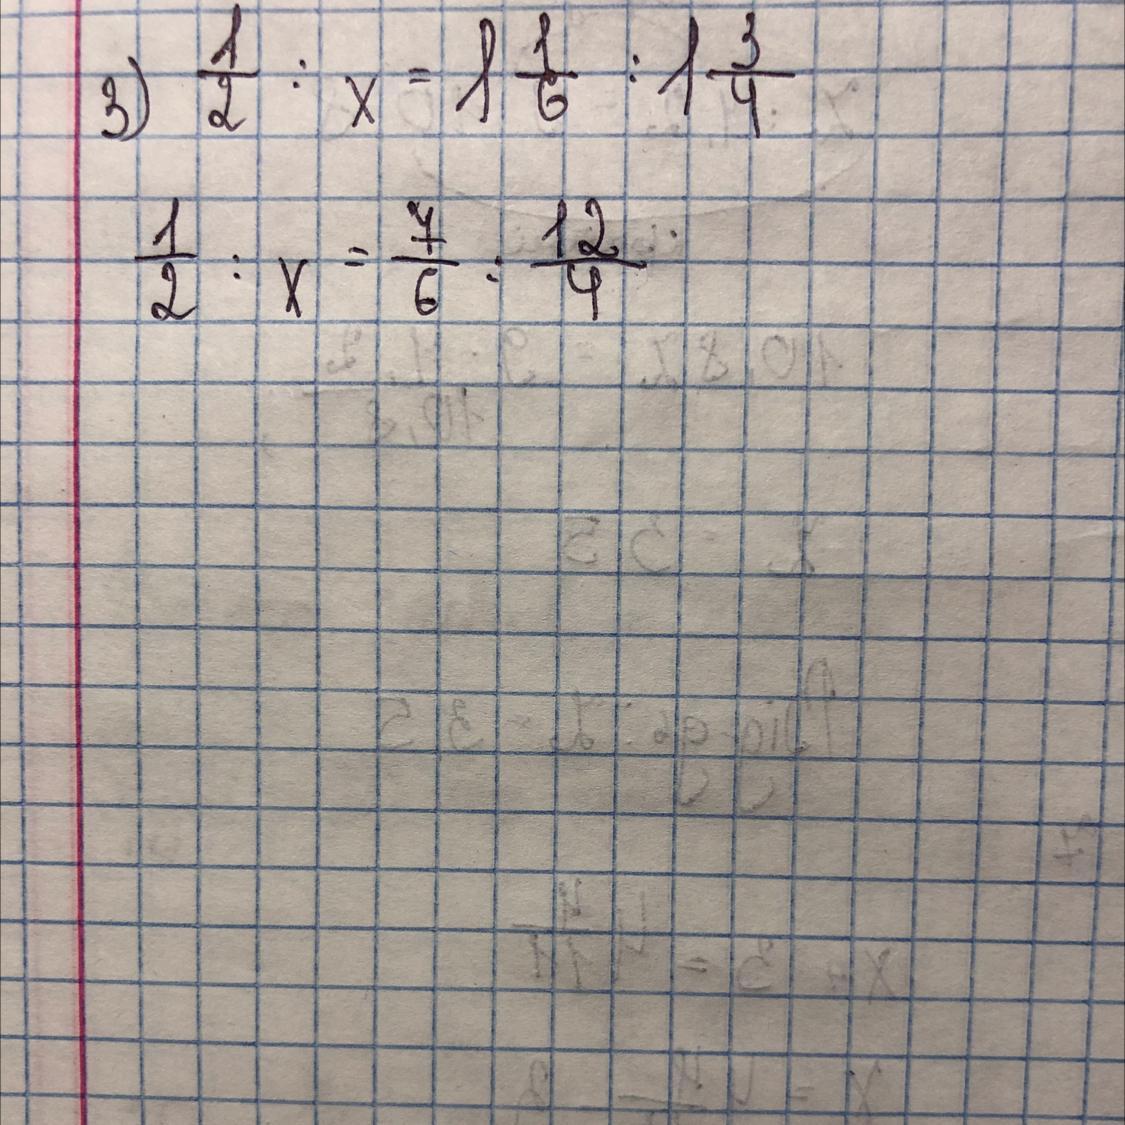 3) 1/2 : x = 1 1/6 : 1 3/4
1/2 : x = 7/6 : 12/4